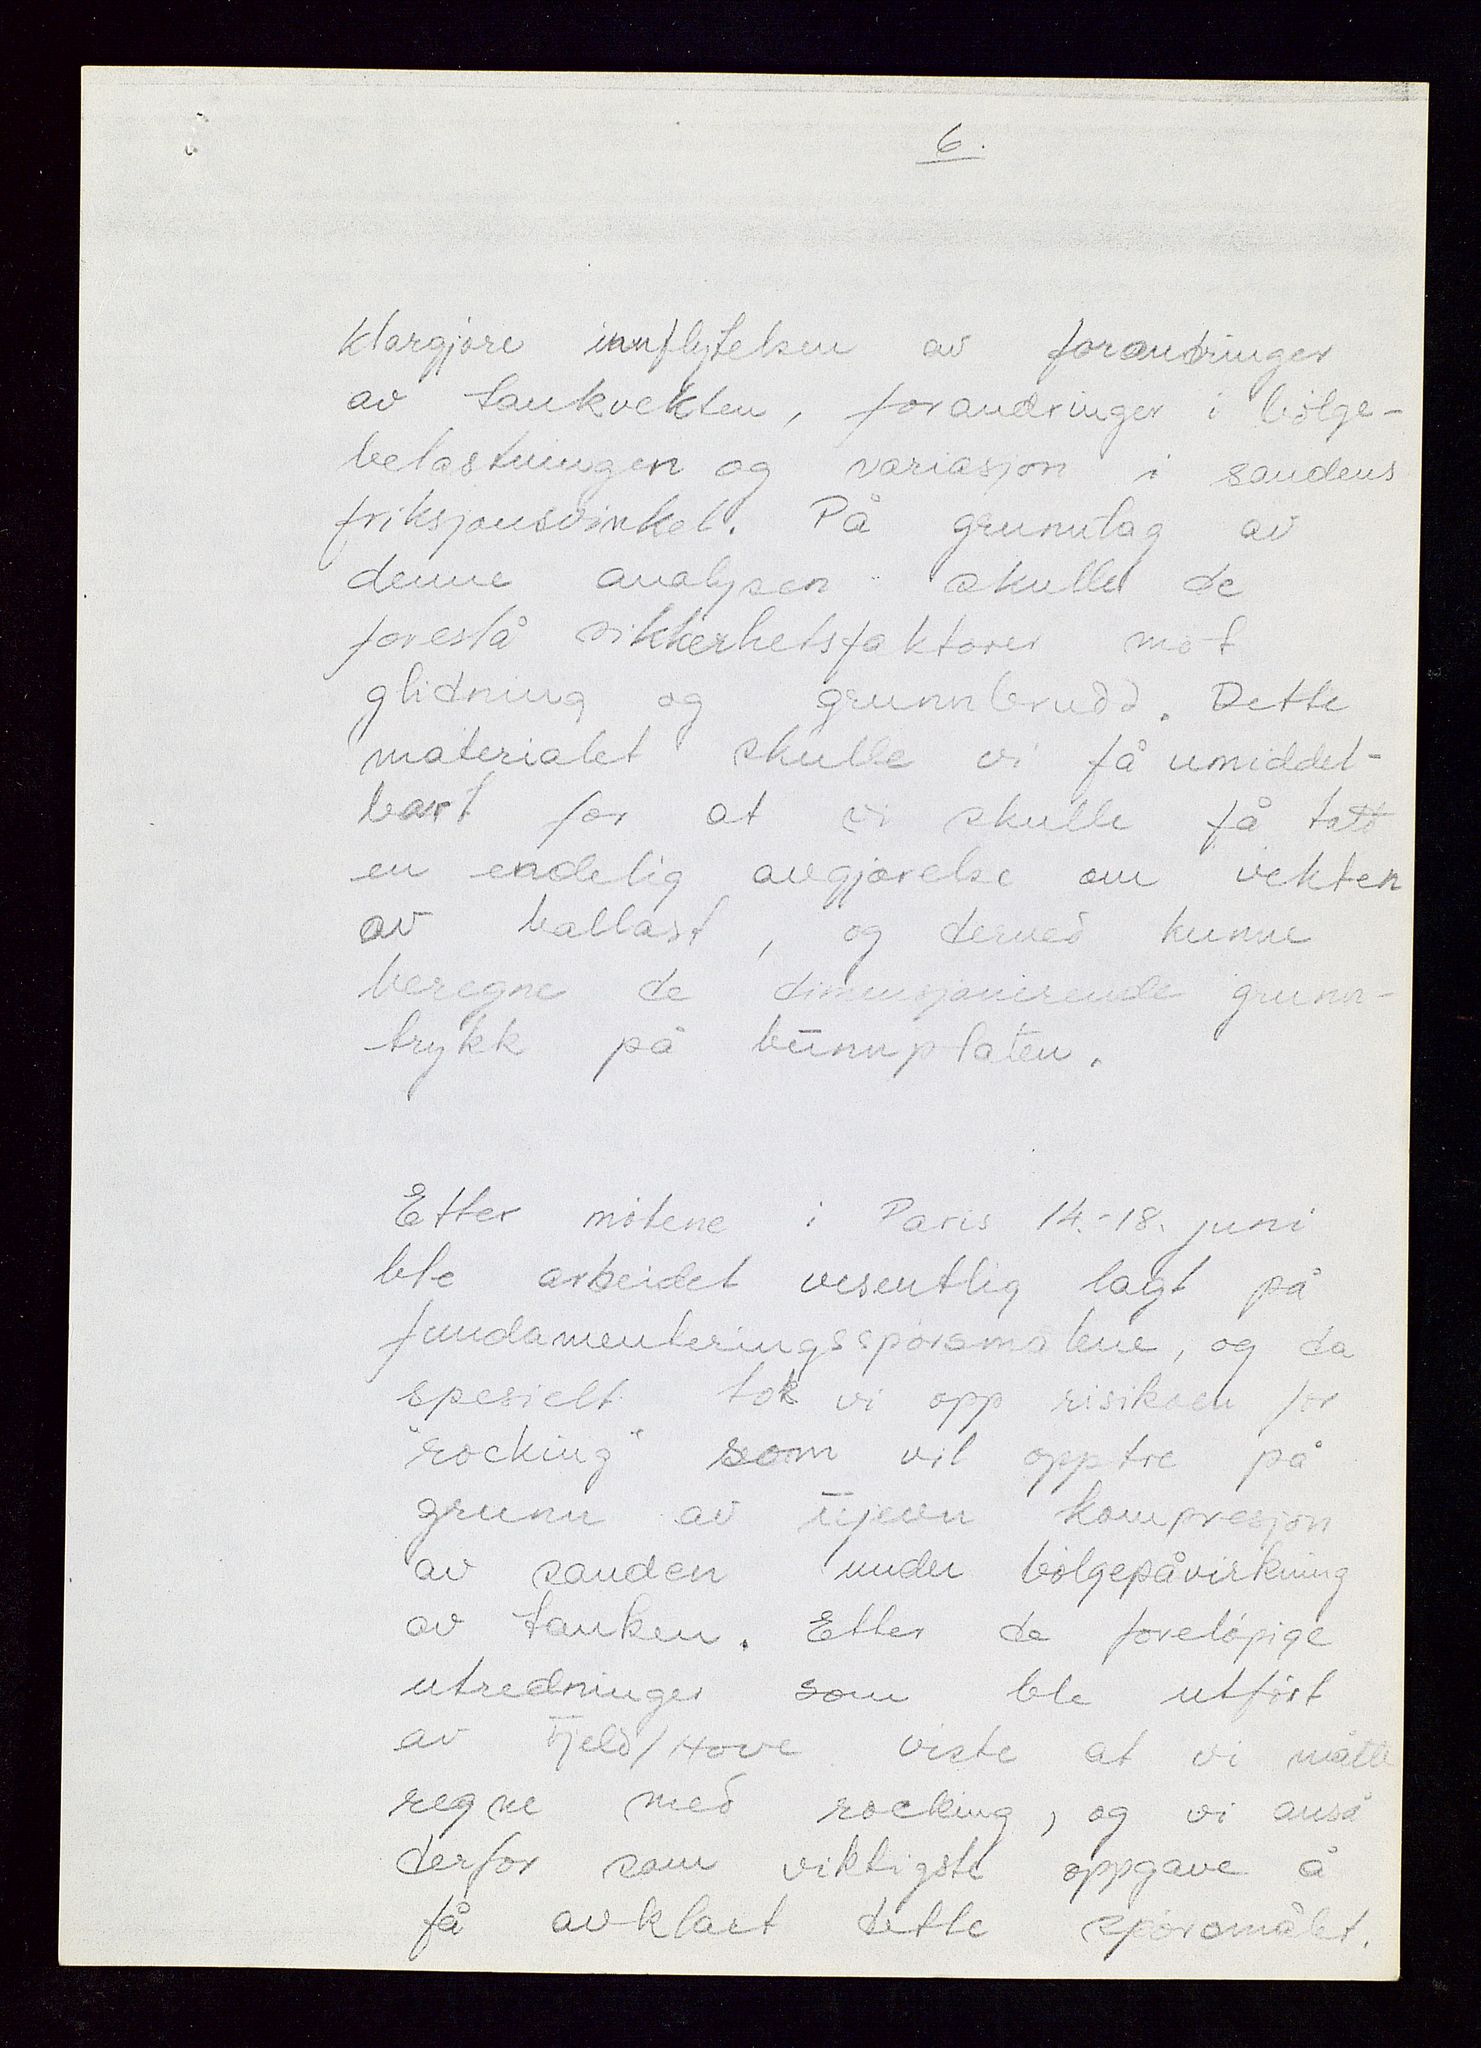 6.
klargjøre innflytelsen av forandringer
av tankvekten, forandringer i bølge-
belastningen og variasjon i sandens
friksjonsvinkel. På grunnlag av
denne analysen skulle de
foreslå sikkerhetsfaktorer mot
glidning og grunnbrudd. Dette
materialet skulle vi få umiddel-
bart for at vi skulle få tatt
en endelig avgjørelse om vekten
av ballast, og derved kunne
beregne de dimensjonerende grunn-
trykk på bunnplaten.
Etter møtene i Paris 14.-18. juni
ble arbeidet vesentlig lagt på
fundamenteringsspørsmålene, og da
spesielt tok vi opp risikoen for
"rocking" som vil opptre på
grunn av ujevn kompresjon
av sanden under bølgepåvirkning
av tanken. Etter de foreløpige
utredninger som ble utført
av Fjeld/Hove viste at vi måtte
regne med rocking, og vi anså
derfor som viktigste oppgave å
få avklart dette spørsmålet.